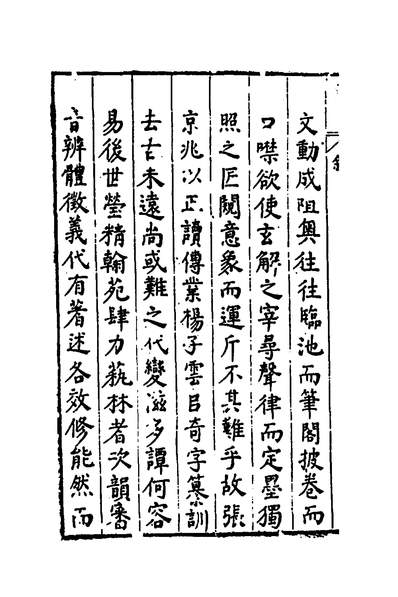 文動成阻奧往往臨池而筆閣披卷而
口噤欲使玄解之宰尋聲律而定墨獨
照之匠闚意象而運斤不其難乎故張
京兆以正讀傳業楊子雲㠯奇字纂訓
去古未遠尚或難之代變滋多譚何容
易後世瑩精翰苑肆力蓺林者次韻審
音辨體徵義代有著述各效修能然而